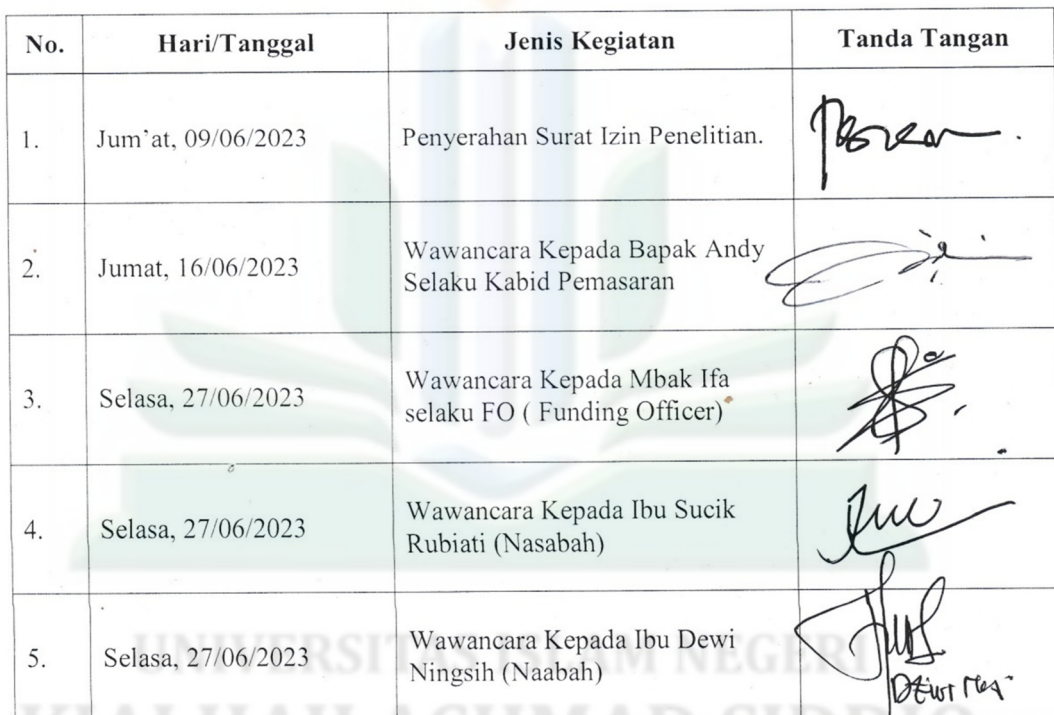 No. Hari/Tanggal Jenis Kegiatan Tanda Tangan
1. Jum'at, 09/06/2023 Penyerahan Surat Izin Penelitian.
2. Jumat, 16/06/2023 Wawancara Kepada Bapak Andy
Selaku Kabid Pemasaran
3. Selasa, 27/06/2023 Wawancara Kepada Mbak Ifa
selaku FO ( Funding Officer)
4. Selasa, 27/06/2023 Wawancara Kepada Ibu Sucik
Rubiati (Nasabah)
5. Selasa, 27/06/2023 Wawancara Kepada Ibu Dewi
Ningsih (Naabah)
UNIVERSITAS ISLAM NEGERI
KIAI HAJI ACHMAD SIDDIQ